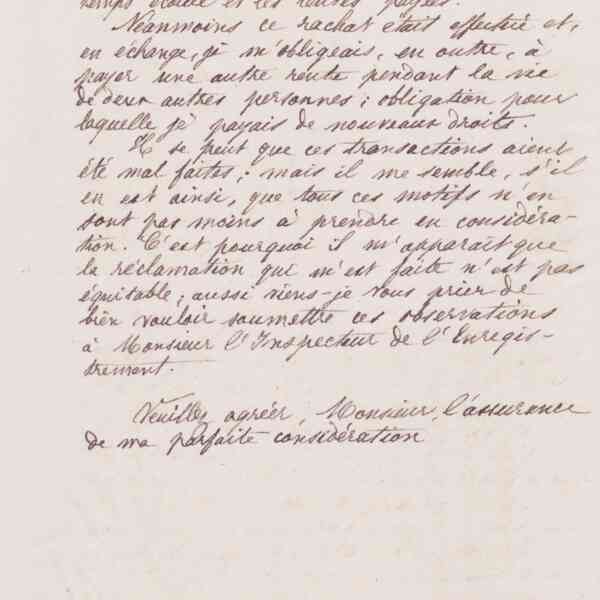 temps écoulé et les rentes payées.
Néanmoins ce rachat était effectué et,
en échange, je m'obligeais, en outre, à
payer une autre rente pendant la vie
de deux autres personnes; obligation pour
laquelle je payais de nouveaux droits.
Il se peut que ces transactions aient
été mal faites; mais il me semble, s'il
en est ainsi, que tous ces motifs n'en
sont pas moins à prendre en considéra-
tion. C'est pourquoi il m'apparaît que
la réclamation qui m'est faite n'est pas
équitable; aussi viens-je vous prier de
bien vouloir soumettre ces observations
à Monsieur l'Inspecteur de l'Enregis-
trement.
Veuillez agréer, Monsieur, l'assurance
de ma parfaite considération